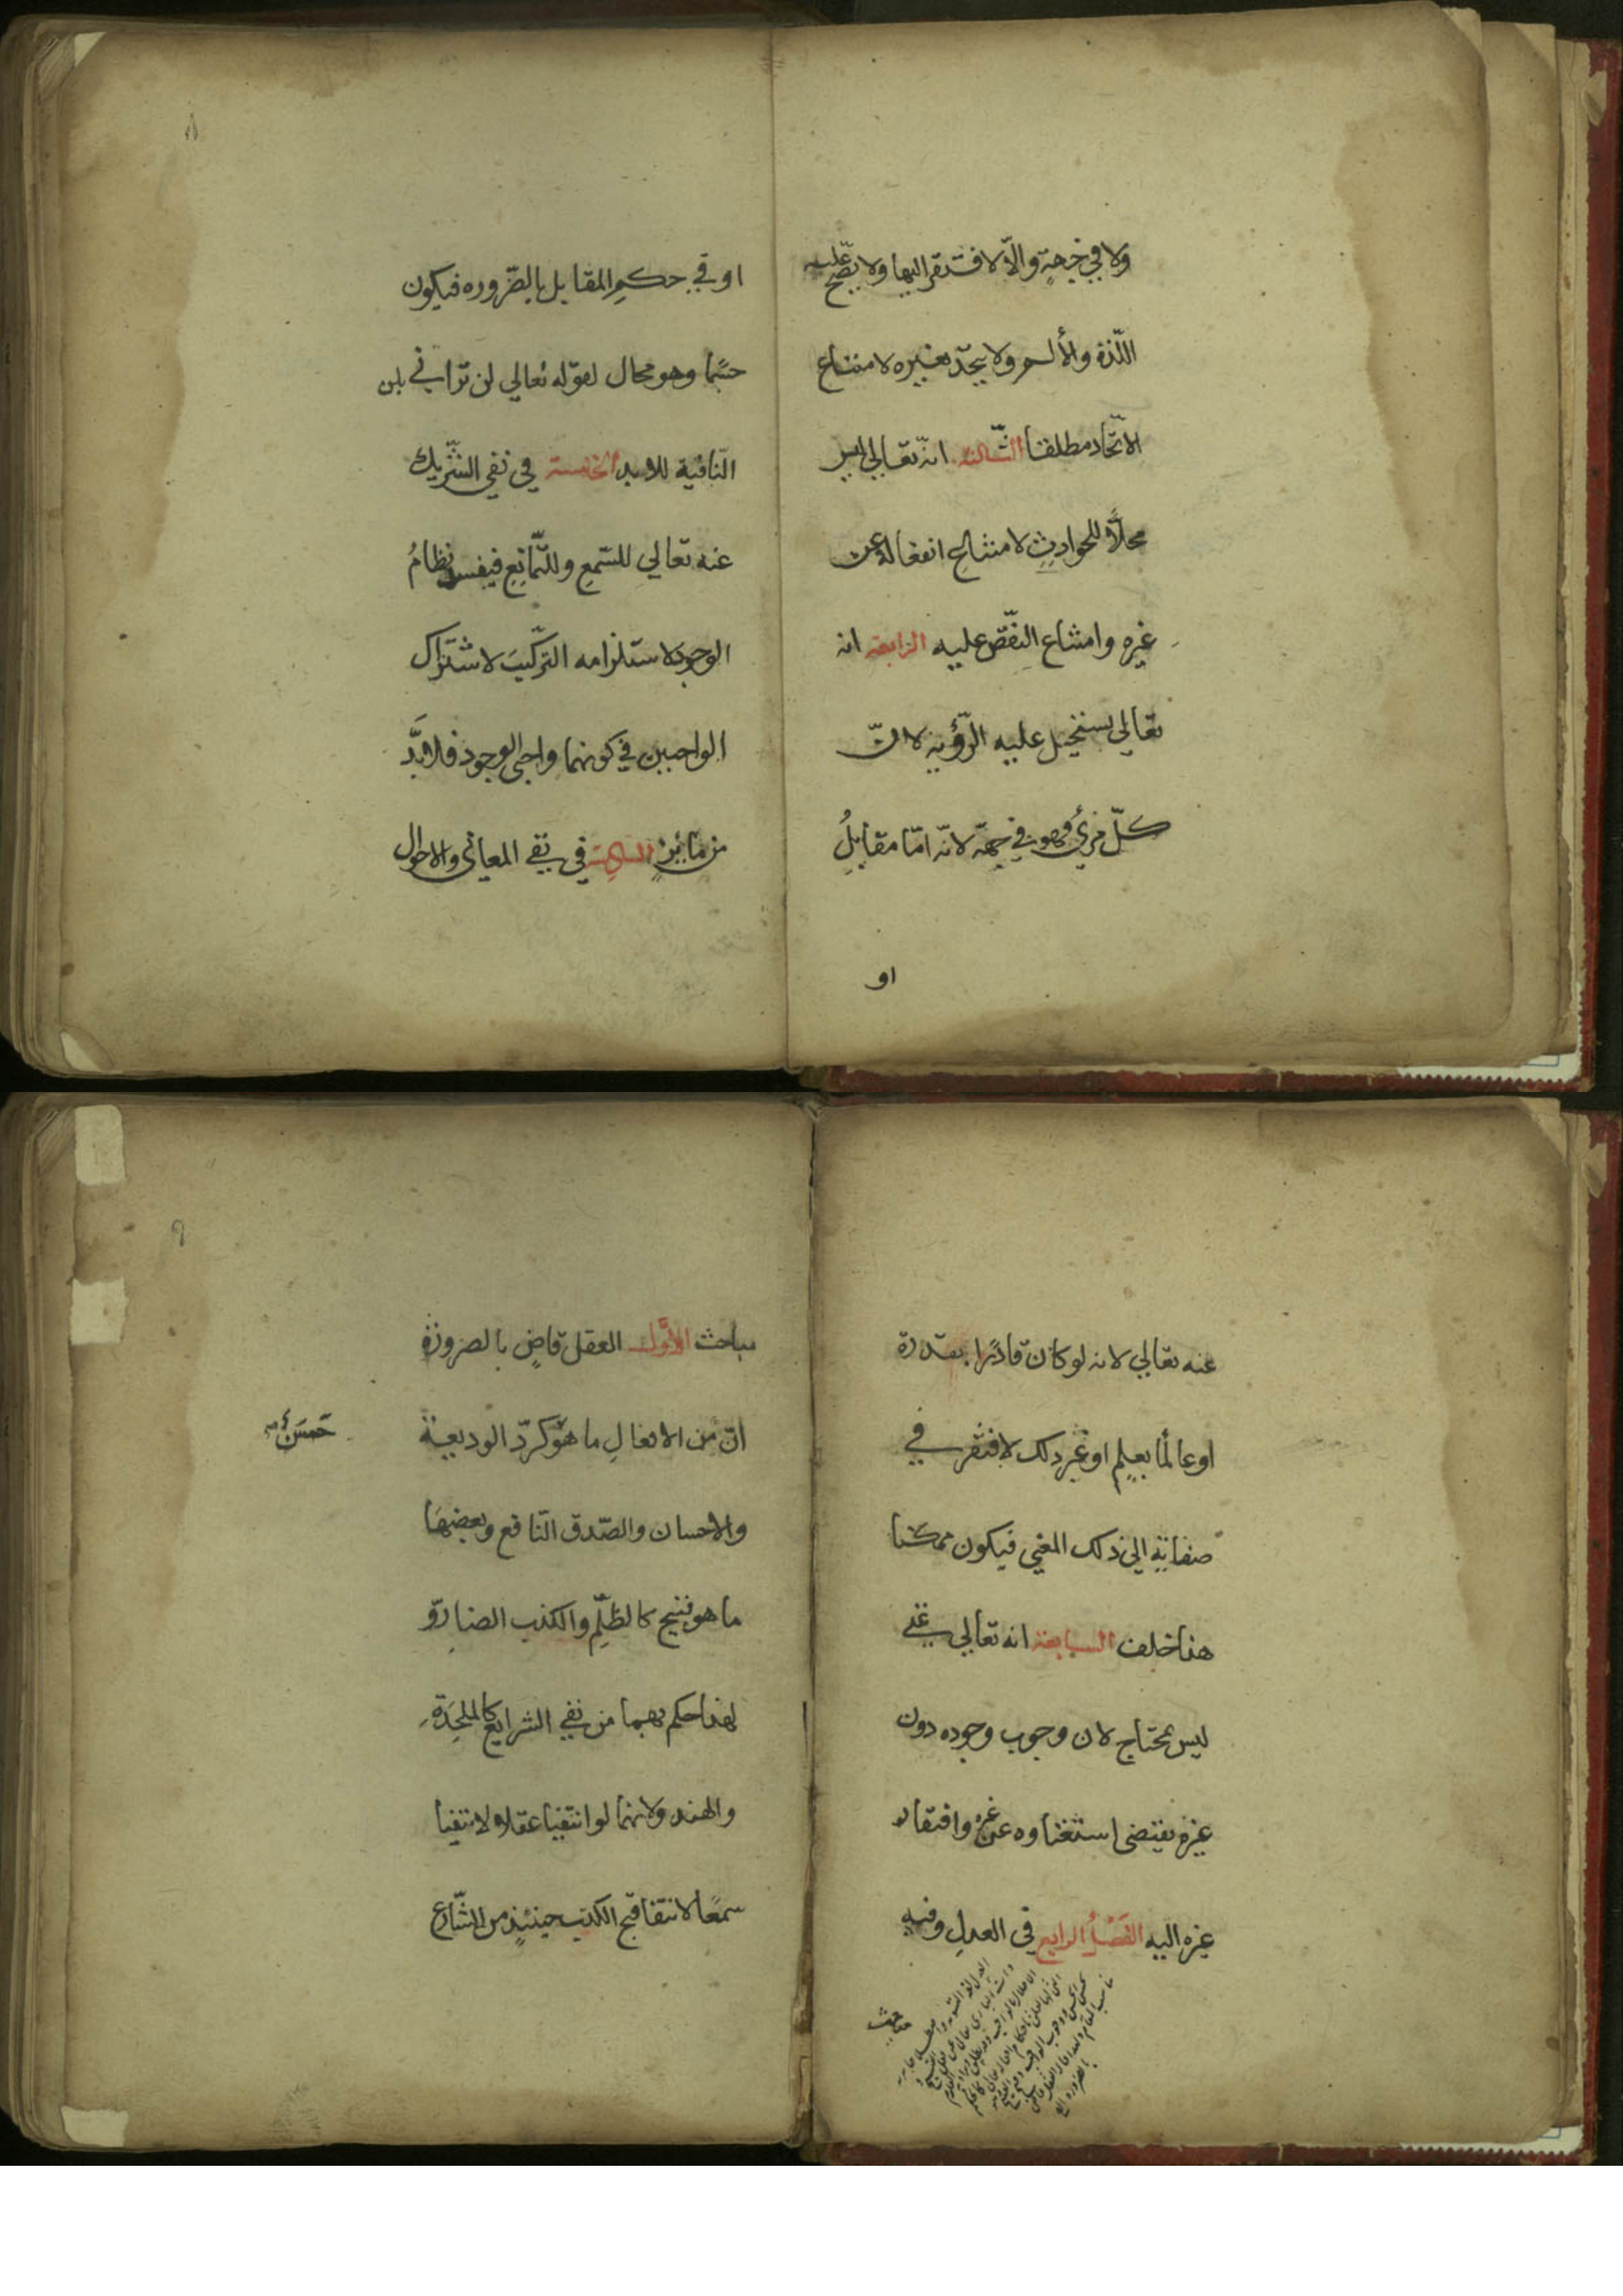 ولا في جهةٍ والّا لافتقر اليها ولا يصحّ عليه
اللّذة والألم ولا يتّحد بغيره لامتناع
الاتّحاد مطلقا الثّالثة انّه تعالى ليس
محلّاً للحوادثِ لامتناع انفعاله عن
غيره وامتناع النقّص عليه الرابعة انه
تعالى يستحيل عليه الرّؤية لانّ
كلّ مرئي فهو في جهة لانّه امّا مقابلُ
او
٨
او في حكمِ المقابل بالضّروره فيكون
جسمًا وهو محال لقوله تعالى لن تراني بلن
النّافية للابد الخامسة في نفي الشّريك
عنه تعالى للسّمع وللتّمانع فيفسد نظامُ
الوجود لاستلزامه التركّيبَ لاشتراك
الواجبين في كونهما واجبي الوجود فلا بدَّ
من مائزٍ السادسة في نفي المعاني والاحوال
عنه تعالى لانه لو كان قادرًا بقدرة
او عالمًا بعلمٍ او غير ذلك لافتقر في
صفاتِه الى ذلك المعنى فيكون ممكنا
هذا خلف السابعة انه تعالى غني
ليس بمحتاج لان وجوب وجوده دون
غيره يقتضى استغناوه عن غيره وافتقار
غيره اليه الفَصْلُ الرابع في العدلِ وفيه
مباحث
٩
مباحث الأوّل العقل قاضٍ بالضرورة
انّ من الافعالِ ما هو كردّ الوديعة
حَسَنٌ
والاحسان والصّدق النّافع وبعضهَا
ما هو قبيح كالظّلمِ والكذب الضارّ و
لهذا حكم بهما من نفي الشرايع كالملحِدَة
والهند ولانهما لو انتفيا عقلا لانتفيا
سمعًا لانتفا قبح الكذب حينئذٍ من الشّارع